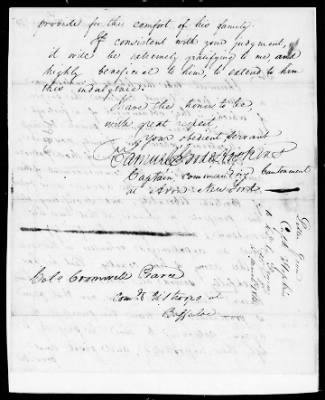 provide for the comfort of his family.
If consistent with your judgment,
it will be extremely gratifying to me, and
highly beneficial to him, to extend to him
this indulgence.
I have the honor to be
with great respect
Your obedient servant
Samuel Hopkins
Captain commanding Cantonment
at Avon New York.
Colo Cromwell Pearce
Comdt. U S troops at
Buffaloe